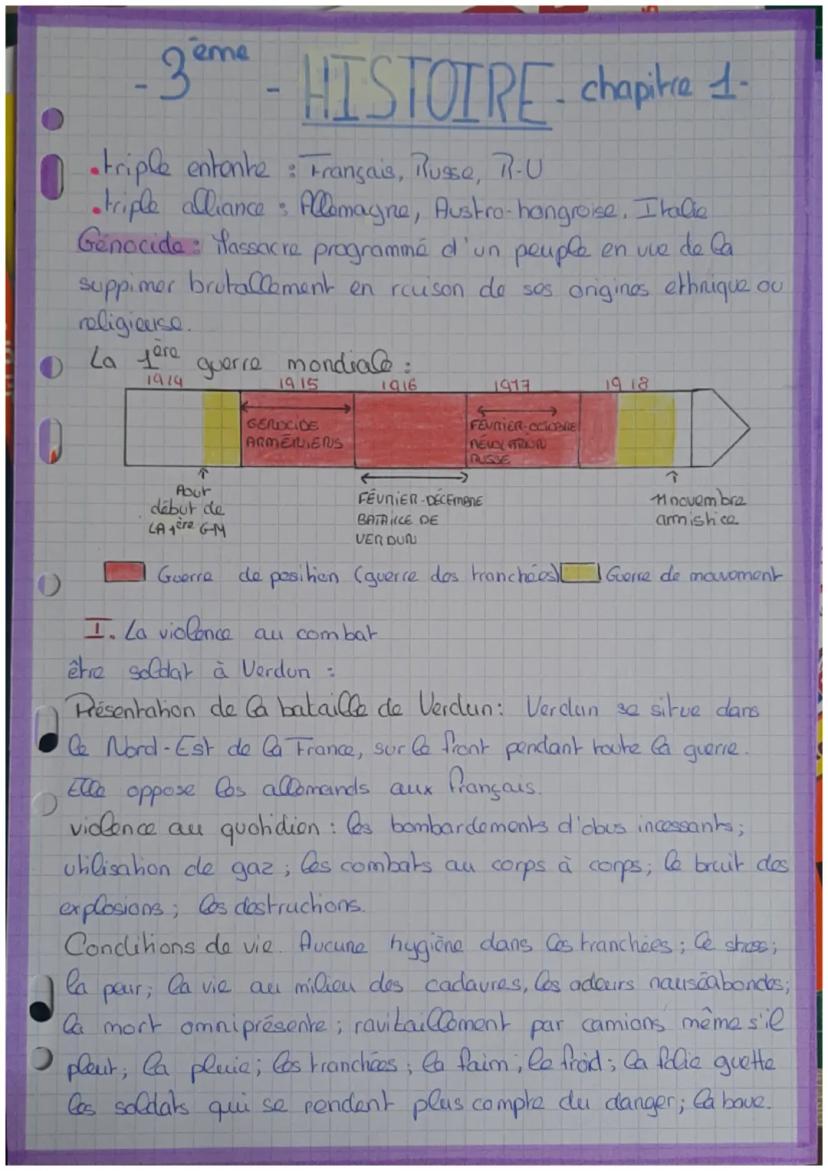 - 3ème - HISTOIRE - chapitre 1 -
• triple entente : Français, Russe, R-U
• triple alliance : Allemagne, Austro-hongroise, Italie
Génocide : Massacre programmé d'un peuple en vue de la
suppimer brutallement en raison de ses origines ethnique ou
religieuse.
La 1ère guerre mondiale :
1914 1915 1916 1917 1918
GENOCIDE
ARMÉNIENS
FÉVRIER-OCTOBRE
RÉVOLUTION
RUSSE
Aout
début de
LA 1ère GM
FÉVRIER-DÉCEMBRE
BATAILLE DE
VERDUN
11 novembre
armistice
Guerre de position (guerre des tranchées) Guerre de mouvement
I. La violence au combat
être soldat à Verdun :
Présentation de la bataille de Verdun : Verdun se situe dans
le Nord-Est de la France, sur le front pendant toute la guerre.
Elle oppose les allemands aux français.
violence au quotidien : les bombardements d'obus incessants ;
utilisation de gaz ; les combats au corps à corps ; le bruit des
explosions ; les destructions.
Conditions de vie. Aucune hygiène dans les tranchées ; le stress ;
la peur ; la vie au milieu des cadavres, les odeurs nauséabondes ;
la mort omniprésente ; ravitaillement par camions même s'il
pleut ; la pluie ; les tranchées ; la faim ; le froid ; la folie guette
les soldats qui se rendent plus compte du danger ; la boue.